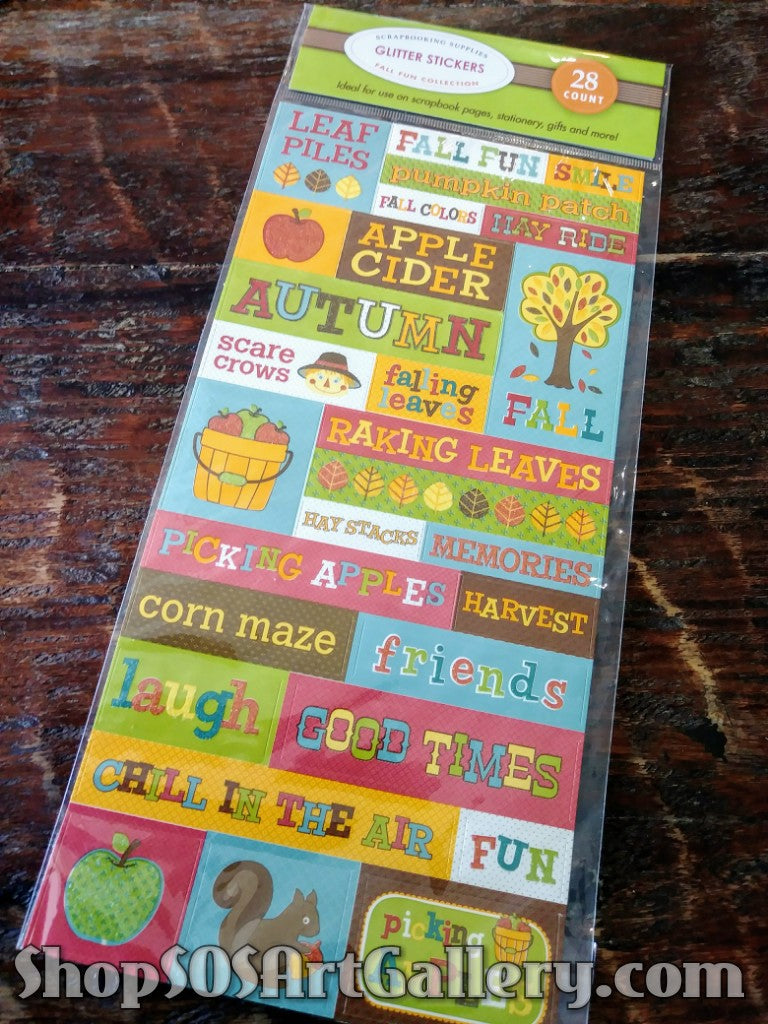 SCRAPBOOKING SUPPLIES
GLITTER STICKERS
FALL FUN COLLECTION
28
COUNT
Ideal for use on scrapbook pages, stationery, gifts and more!
LEAF
PILES
FALL FUN
SMILE
pumpkin patch
FALL COLORS
HAY RIDE
APPLE
CIDER
AUTUMN
scare
crows
falling
leaves
FALL
RAKING LEAVES
HAY STACKS
MEMORIES
PICKING APPLES
HARVEST
corn maze
friends
laugh
GOOD TIMES
CHILL IN THE AIR
FUN
picking
APPLES
ShopSOSArtGallery.com